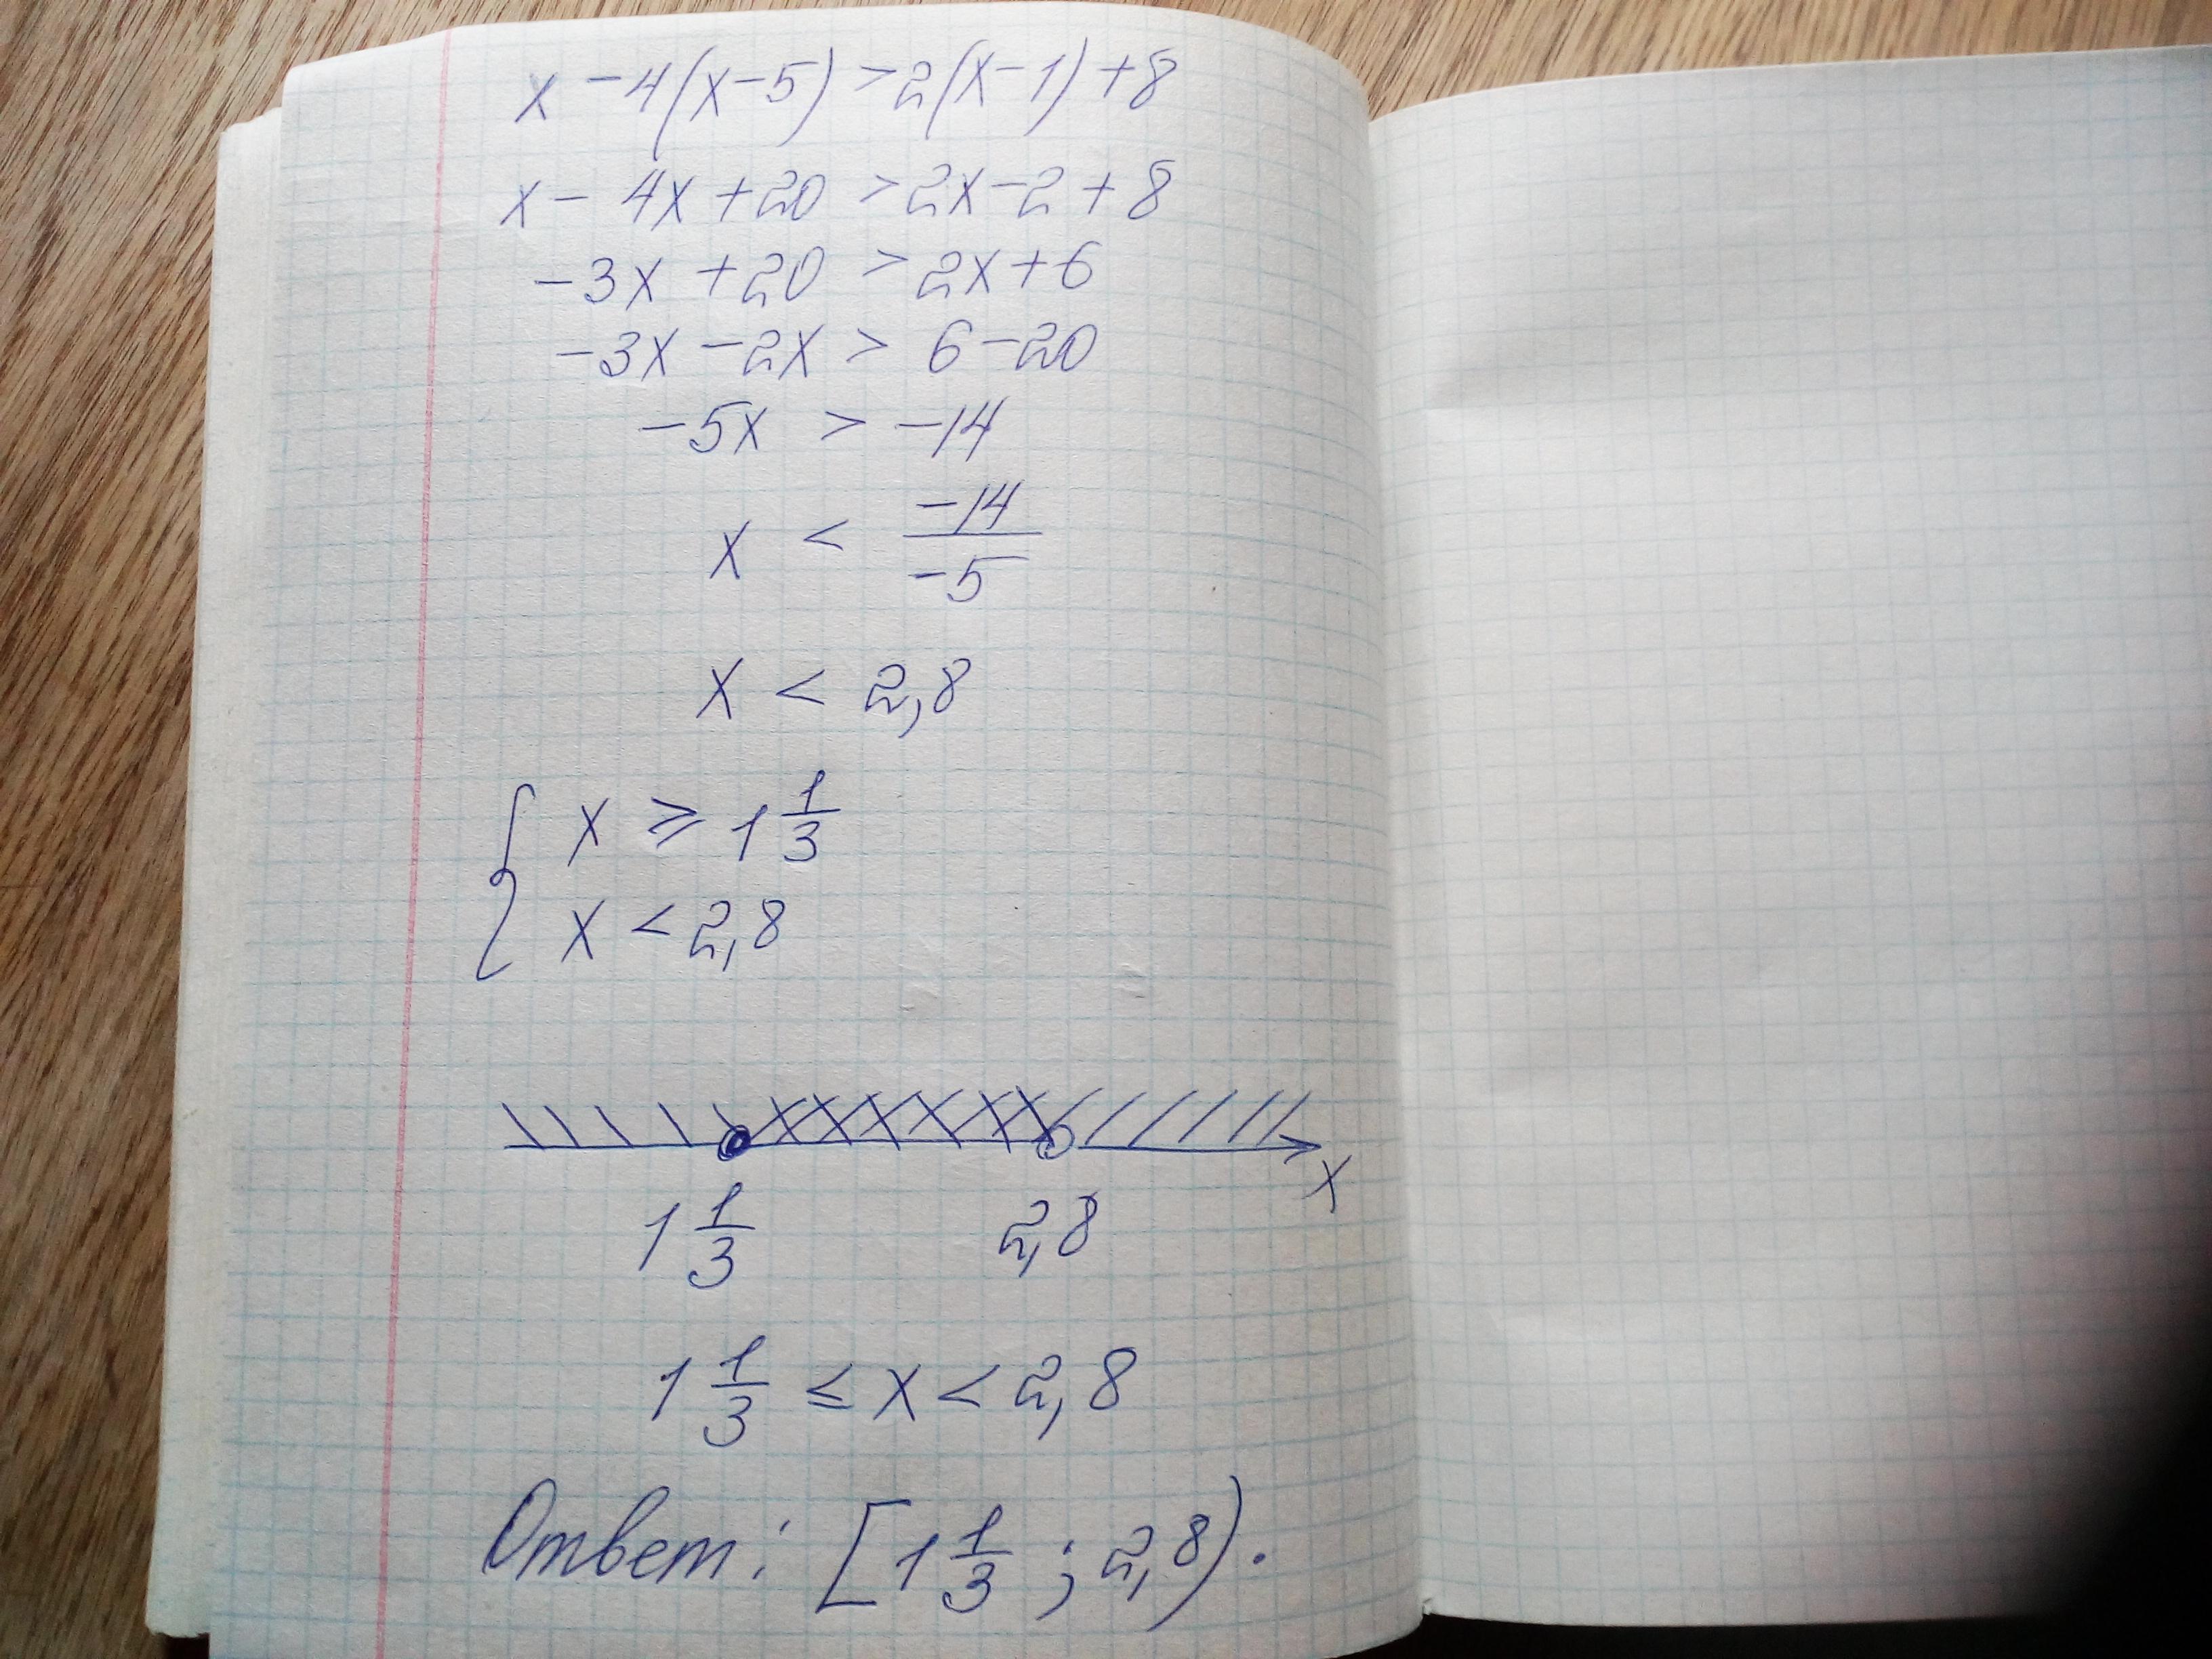 x - 4(x-5) > 2(x-1) + 8
x - 4x + 20 > 2x - 2 + 8
-3x + 20 > 2x + 6
-3x - 2x > 6 - 20
-5x > -14
x < -14/-5
x < 2,8
{ x ≥ 1 1/3
x < 2,8
x
1 1/3 2,8
1 1/3 ≤ x < 2,8
Ответ: [1 1/3 ; 2,8).